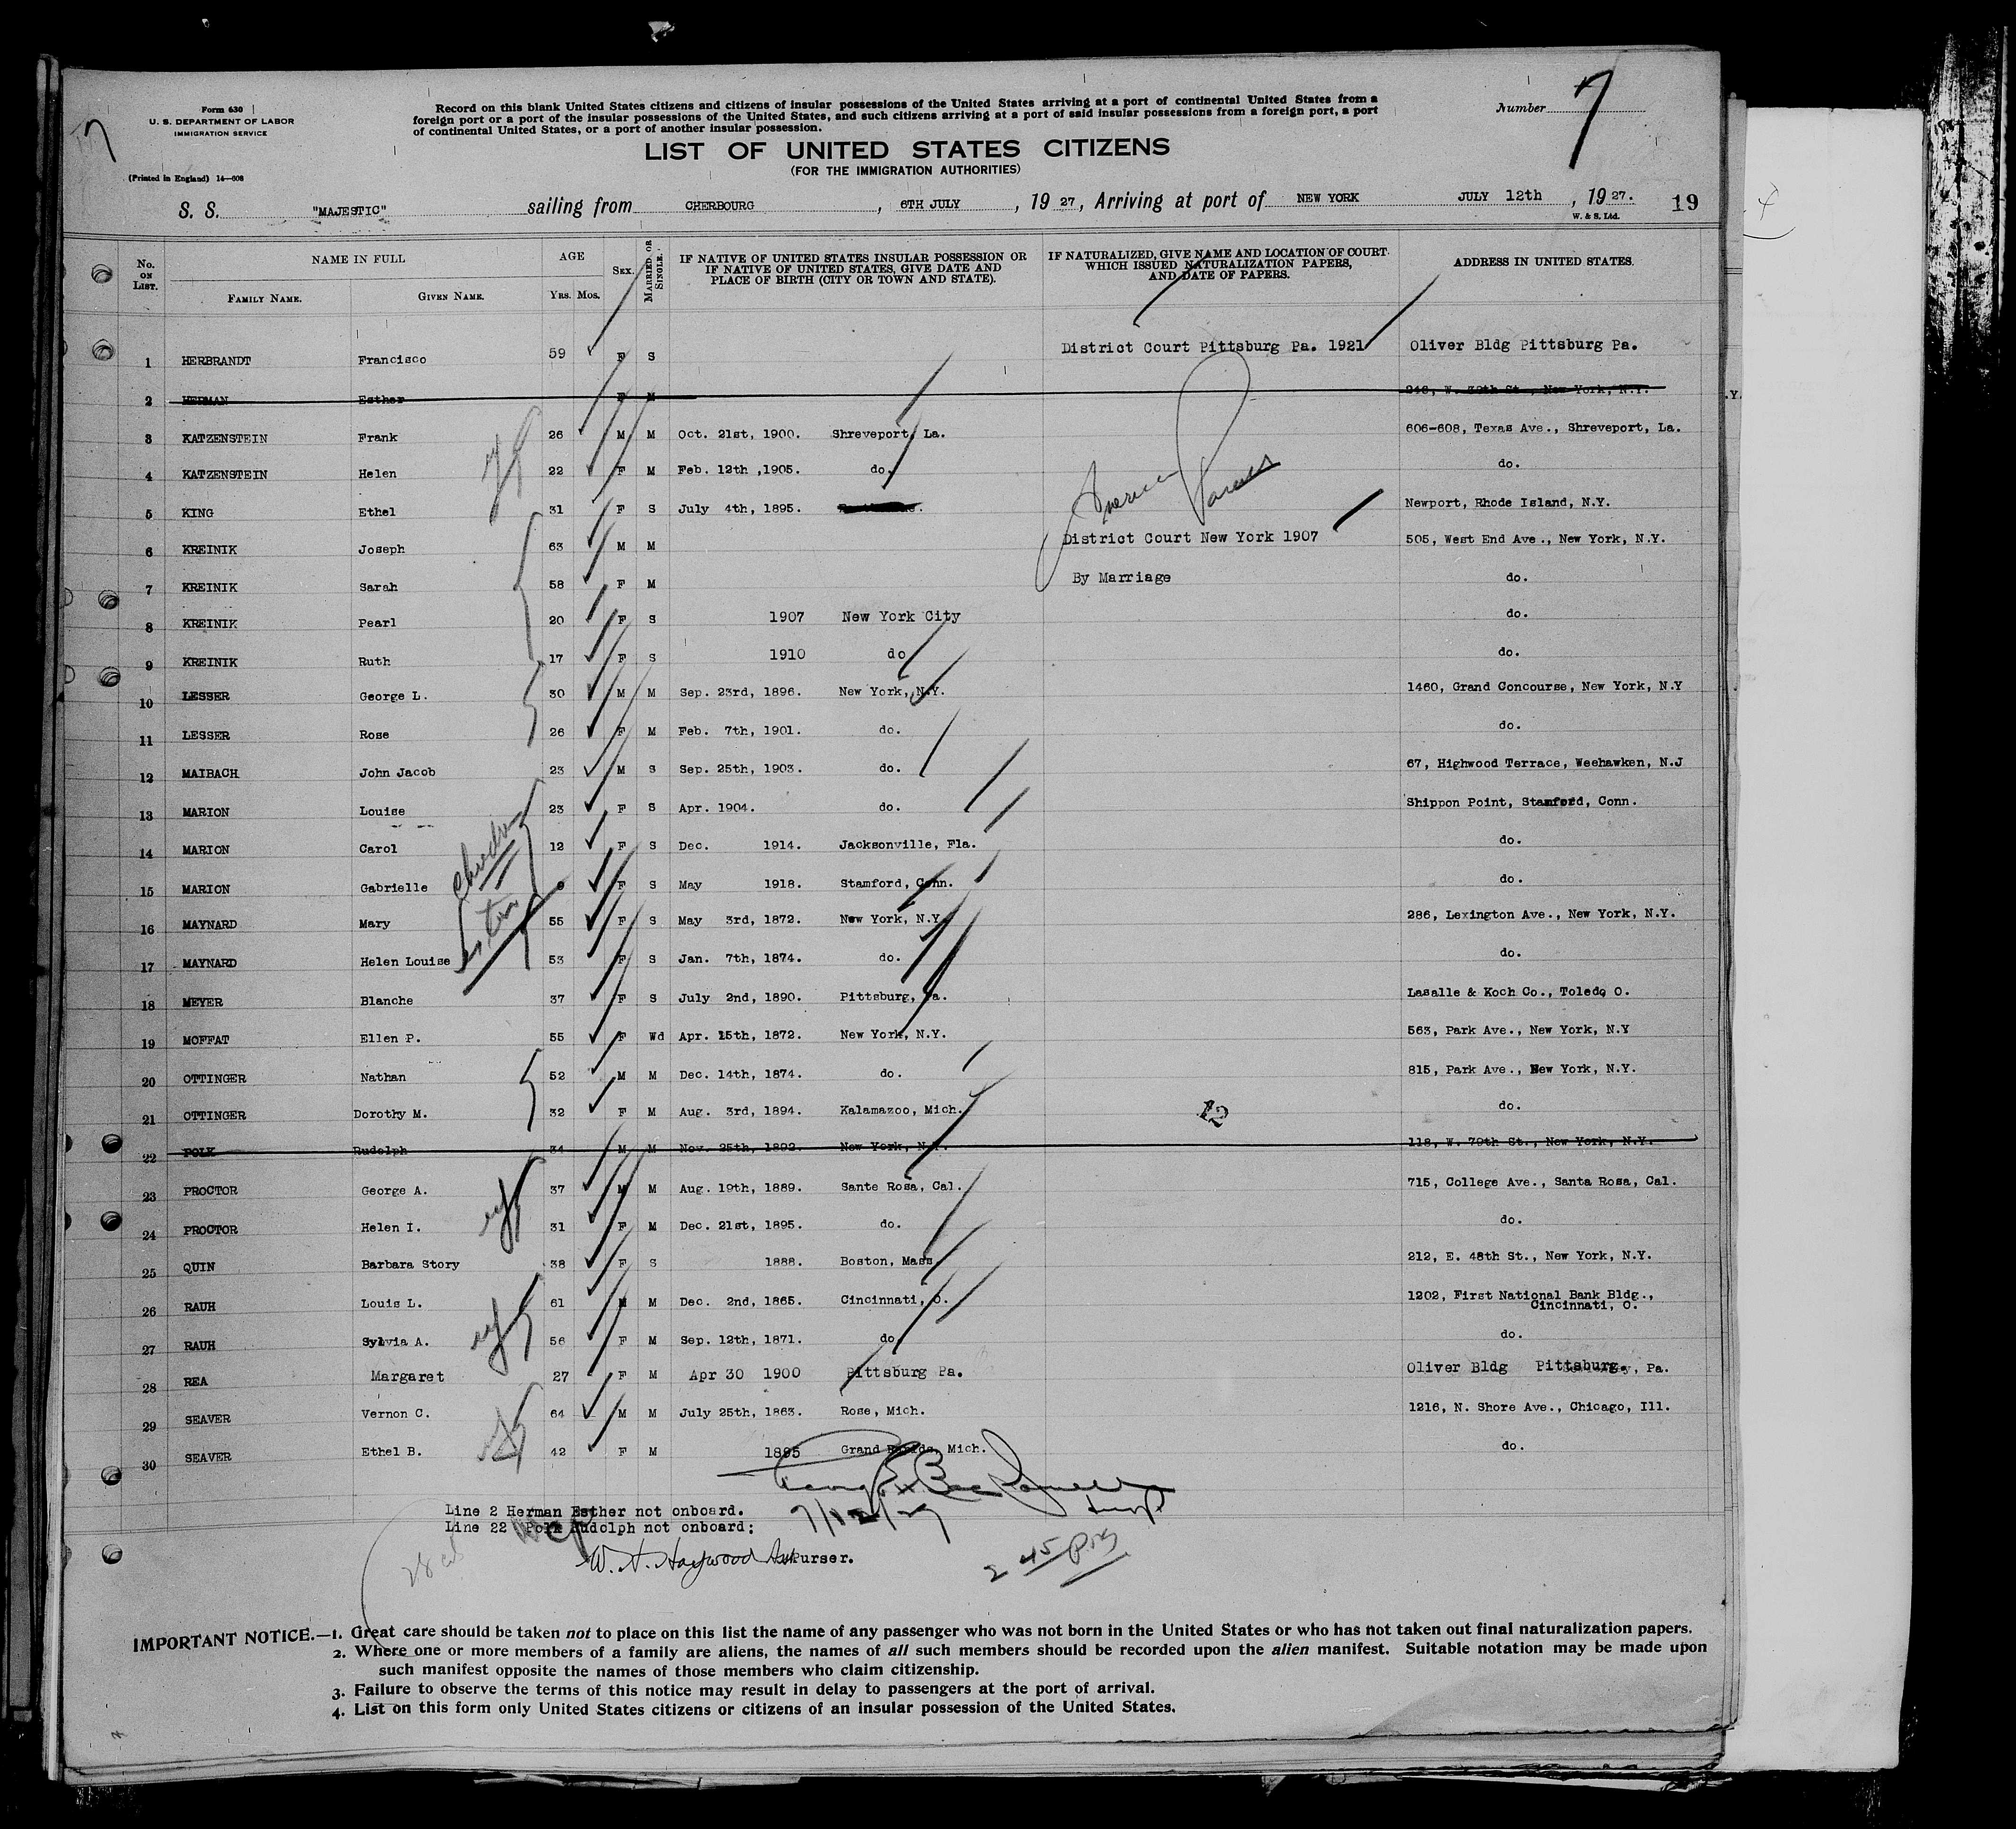 Form 630
U. S. DEPARTMENT OF LABOR
IMMIGRATION SERVICE
(Printed in England) 14—608
Record on this blank United States citizens and citizens of insular possessions of the United States arriving at a port of continental United States from a
foreign port or a port of the insular possessions of the United States, and such citizens arriving at a port of said insular possessions from a foreign port, a port
of continental United States, or a port of another insular possession.
Number 7
7
LIST OF UNITED STATES CITIZENS
(FOR THE IMMIGRATION AUTHORITIES)
S. S. "MAJESTIC" sailing from CHERBOURG, 6TH JULY, 19 27, Arriving at port of NEW YORK JULY 12th, 19 27. 19
W. & S. Ltd.
No. ON LIST. NAME IN FULL AGE SEX. MARRIED OR SINGLE. IF NATIVE OF UNITED STATES INSULAR POSSESSION OR IF NATIVE OF UNITED STATES, GIVE DATE AND PLACE OF BIRTH (CITY OR TOWN AND STATE). IF NATURALIZED, GIVE NAME AND LOCATION OF COURT WHICH ISSUED NATURALIZATION PAPERS, AND DATE OF PAPERS. ADDRESS IN UNITED STATES.
FAMILY NAME. GIVEN NAME. YRS. MOS.
1 HERBRANDT Francisco 59 F S District Court Pittsburg Pa. 1921 Oliver Bldg Pittsburg Pa.
2 HERMAN Esther F M W. St., New York, N.Y.
3 KATZENSTEIN Frank 26 M M Oct. 21st, 1900. Shreveport, La. 606-608, Texas Ave., Shreveport, La.
4 KATZENSTEIN Helen 22 F M Feb. 12th ,1905. do. do.
5 KING Ethel 31 F S July 4th, 1895. American Parents Newport, Rhode Island, N.Y.
6 KREINIK Joseph 63 M M District Court New York 1907 505, West End Ave., New York, N.Y.
7 KREINIK Sarah 58 F M By Marriage do.
8 KREINIK Pearl 20 F S 1907 New York City do.
9 KREINIK Ruth 17 F S 1910 do do.
10 LESSER George L. 30 M M Sep. 23rd, 1896. New York, N.Y. 1460, Grand Concourse, New York, N.Y
11 LESSER Rose 26 F M Feb. 7th, 1901. do. do.
12 MAIBACH John Jacob 23 M S Sep. 25th, 1903. do. 67, Highwood Terrace, Weehawken, N.J
13 MARION Louise 23 F S Apr. 1904. do. Shippon Point, Stamford, Conn.
14 MARION Carol 12 F S Dec. 1914. Jacksonville, Fla. do.
15 MARION Gabrielle 9 F S May 1918. Stamford, Conn. do.
16 MAYNARD Mary 55 F S May 3rd, 1872. New York, N.Y. 286, Lexington Ave., New York, N.Y.
17 MAYNARD Helen Louise 53 F S Jan. 7th, 1874. do. do.
18 MEYER Blanche 37 F S July 2nd, 1890. Pittsburg, Pa. Lasalle & Koch Co., Toledo O.
19 MOFFAT Ellen P. 55 F Wd Apr. 15th, 1872. New York, N.Y. 563, Park Ave., New York, N.Y
20 OTTINGER Nathan 52 M M Dec. 14th, 1874. do. 815, Park Ave., New York, N.Y.
21 OTTINGER Dorothy M. 32 F M Aug. 3rd, 1894. Kalamazoo, Mich. 12 do.
22 POLK Rudolph 34 M M Nov. 25th, 1892. New York, N.Y. 118, W. 79th St., New York, N.Y.
23 PROCTOR George A. 37 M M Aug. 19th, 1889. Sante Rosa, Cal. 715, College Ave., Santa Rosa, Cal.
24 PROCTOR Helen I. 31 F M Dec. 21st, 1895. do. do.
25 QUIN Barbara Story 38 F S 1888. Boston, Mass 212, E. 48th St., New York, N.Y.
26 RAUH Louis L. 61 M M Dec. 2nd, 1865. Cincinnati, O. 1202, First National Bank Bldg.,
Cincinnati, O.
27 RAUH Sylvia A. 56 F M Sep. 12th, 1871. do. do.
28 REA Margaret 27 F M Apr 30 1900 Pittsburg Pa. Oliver Bldg Pittsburg, Pa.
29 SEAVER Vernon C. 64 M M July 25th, 1863. Rose, Mich. 1216, N. Shore Ave., Chicago, Ill.
30 SEAVER Ethel B. 42 F M 1885 Grand Rapids, Mich. do.
Line 2 Herman Esther not onboard.
Line 22 Polk Rudolph not onboard;
7/12/27
W. A. Haywood Asst Purser.
2 45 pm
28
IMPORTANT NOTICE.—1. Great care should be taken not to place on this list the name of any passenger who was not born in the United States or who has not taken out final naturalization papers.
2. Where one or more members of a family are aliens, the names of all such members should be recorded upon the alien manifest. Suitable notation may be made upon
such manifest opposite the names of those members who claim citizenship.
3. Failure to observe the terms of this notice may result in delay to passengers at the port of arrival.
4. List on this form only United States citizens or citizens of an insular possession of the United States.